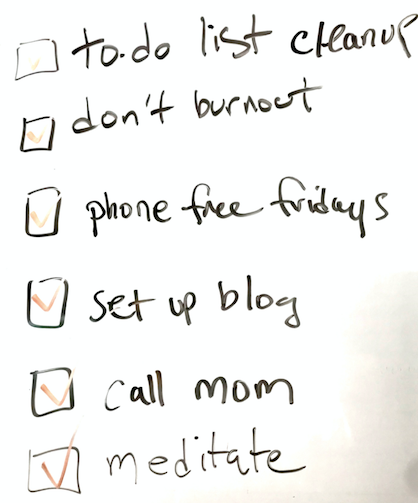 to-do list cleanup
don't burnout
phone free fridays
set up blog
call mom
meditate